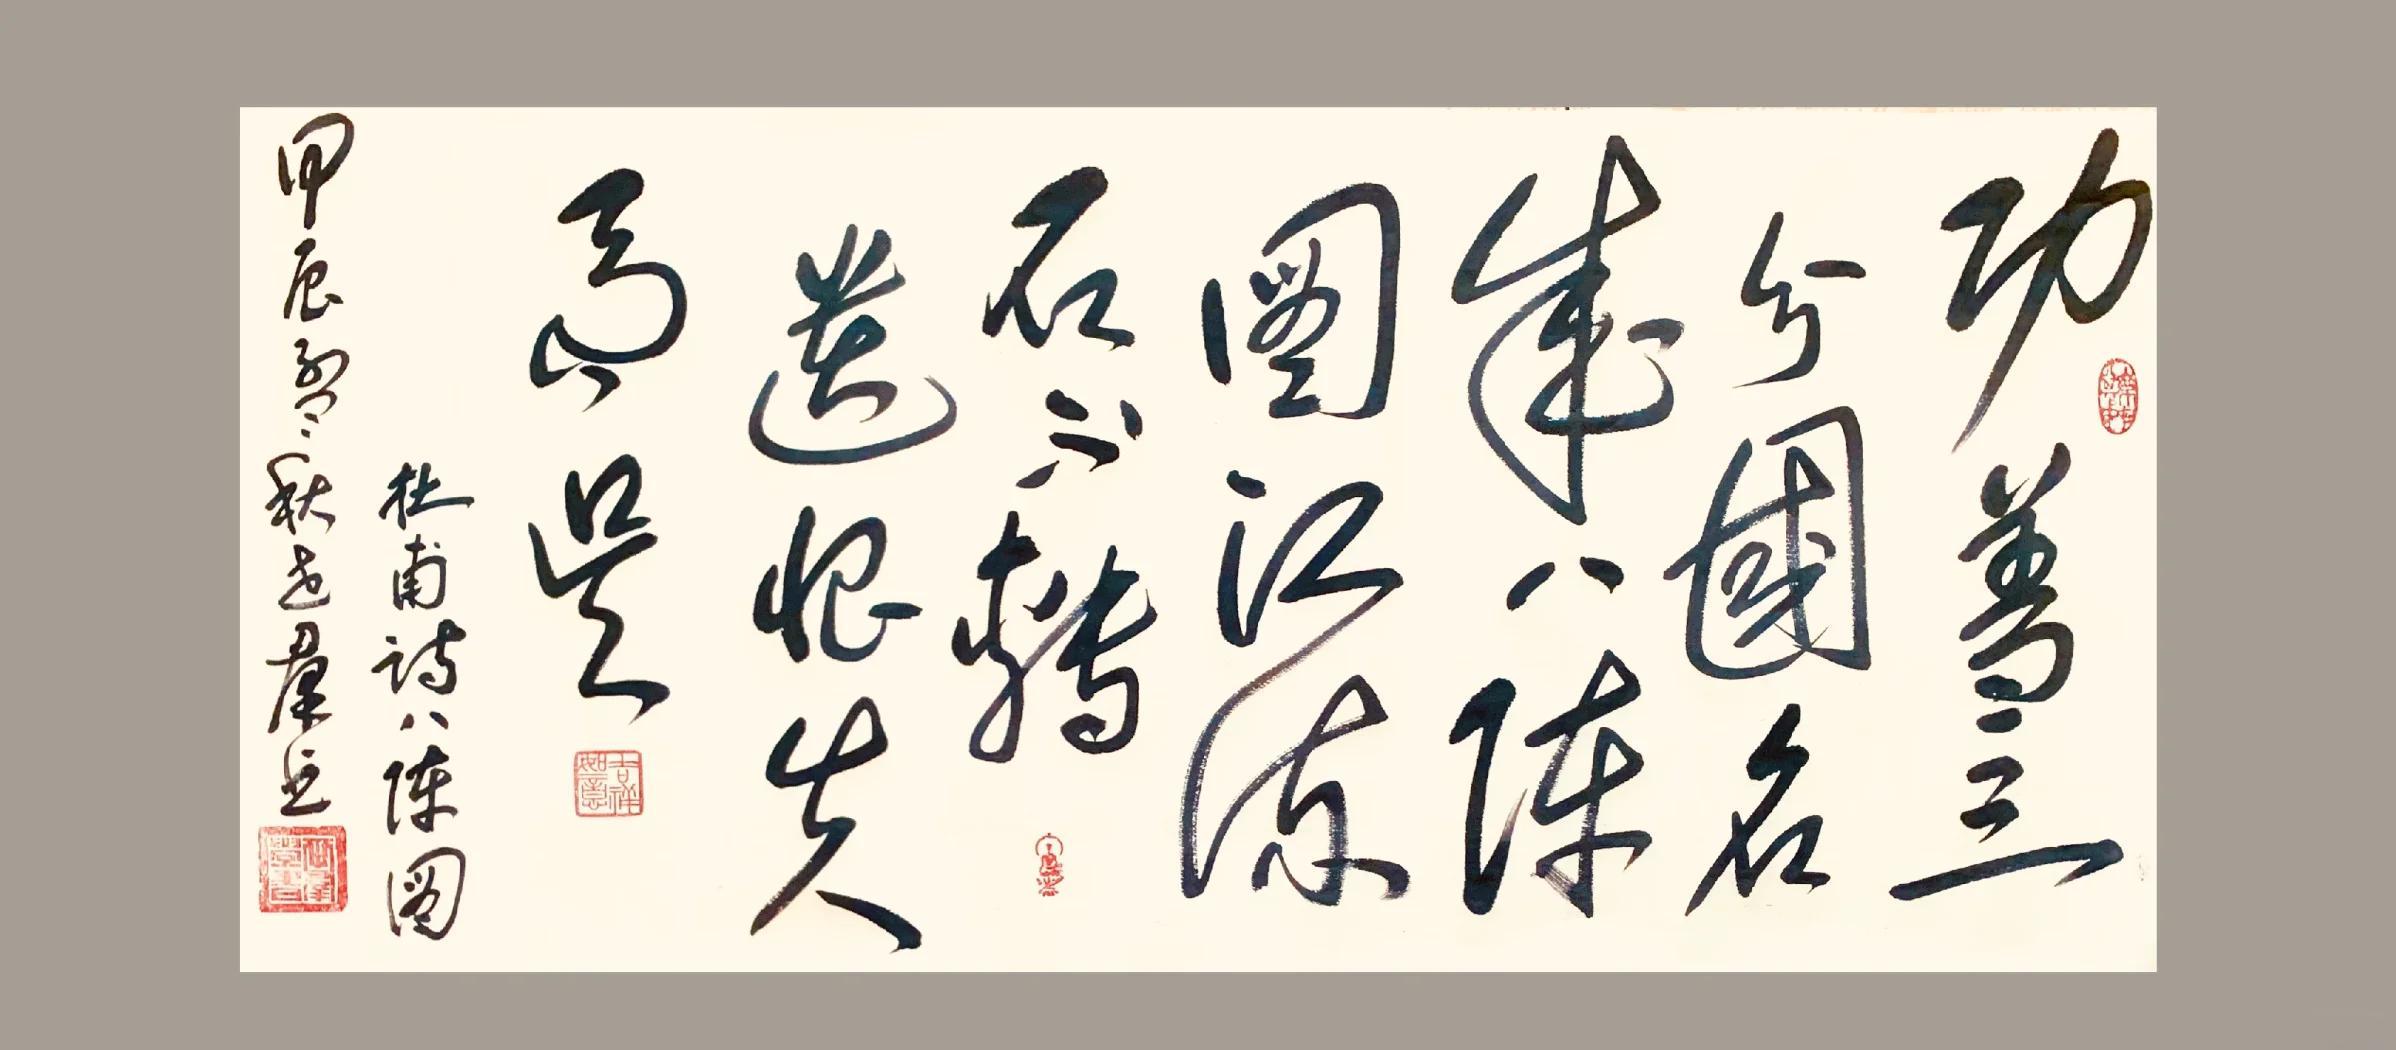 功蓋三
分國名
成八陣
圖江流
石不轉
遺恨失
吞吳
吉祥如意
杜甫詩八陣圖
甲辰 秋 世羣书